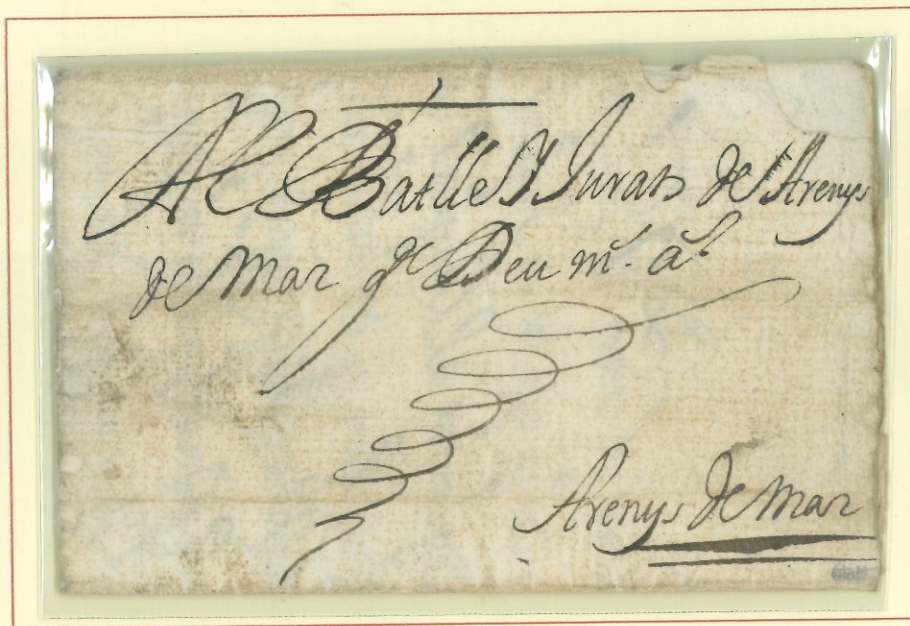 Al Batlle Y Jurats de Arenys
de Mar g.e Deu m.s a.s
Arenys de Mar